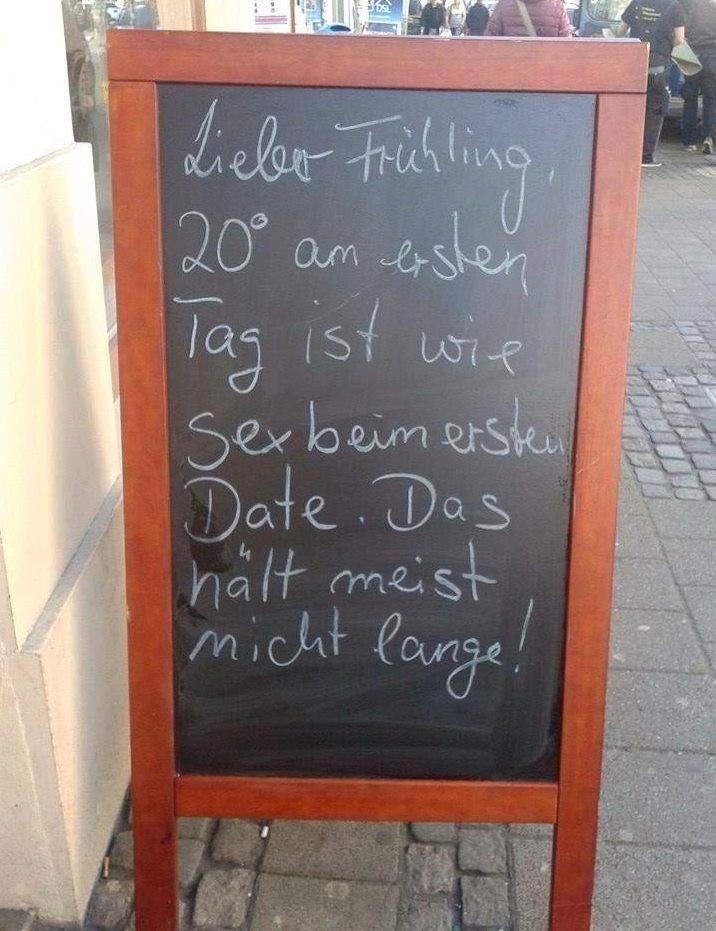 Lieber Frühling,
20° am ersten
Tag ist wie
Sex beim ersten
Date. Das
hält meist
nicht lange!